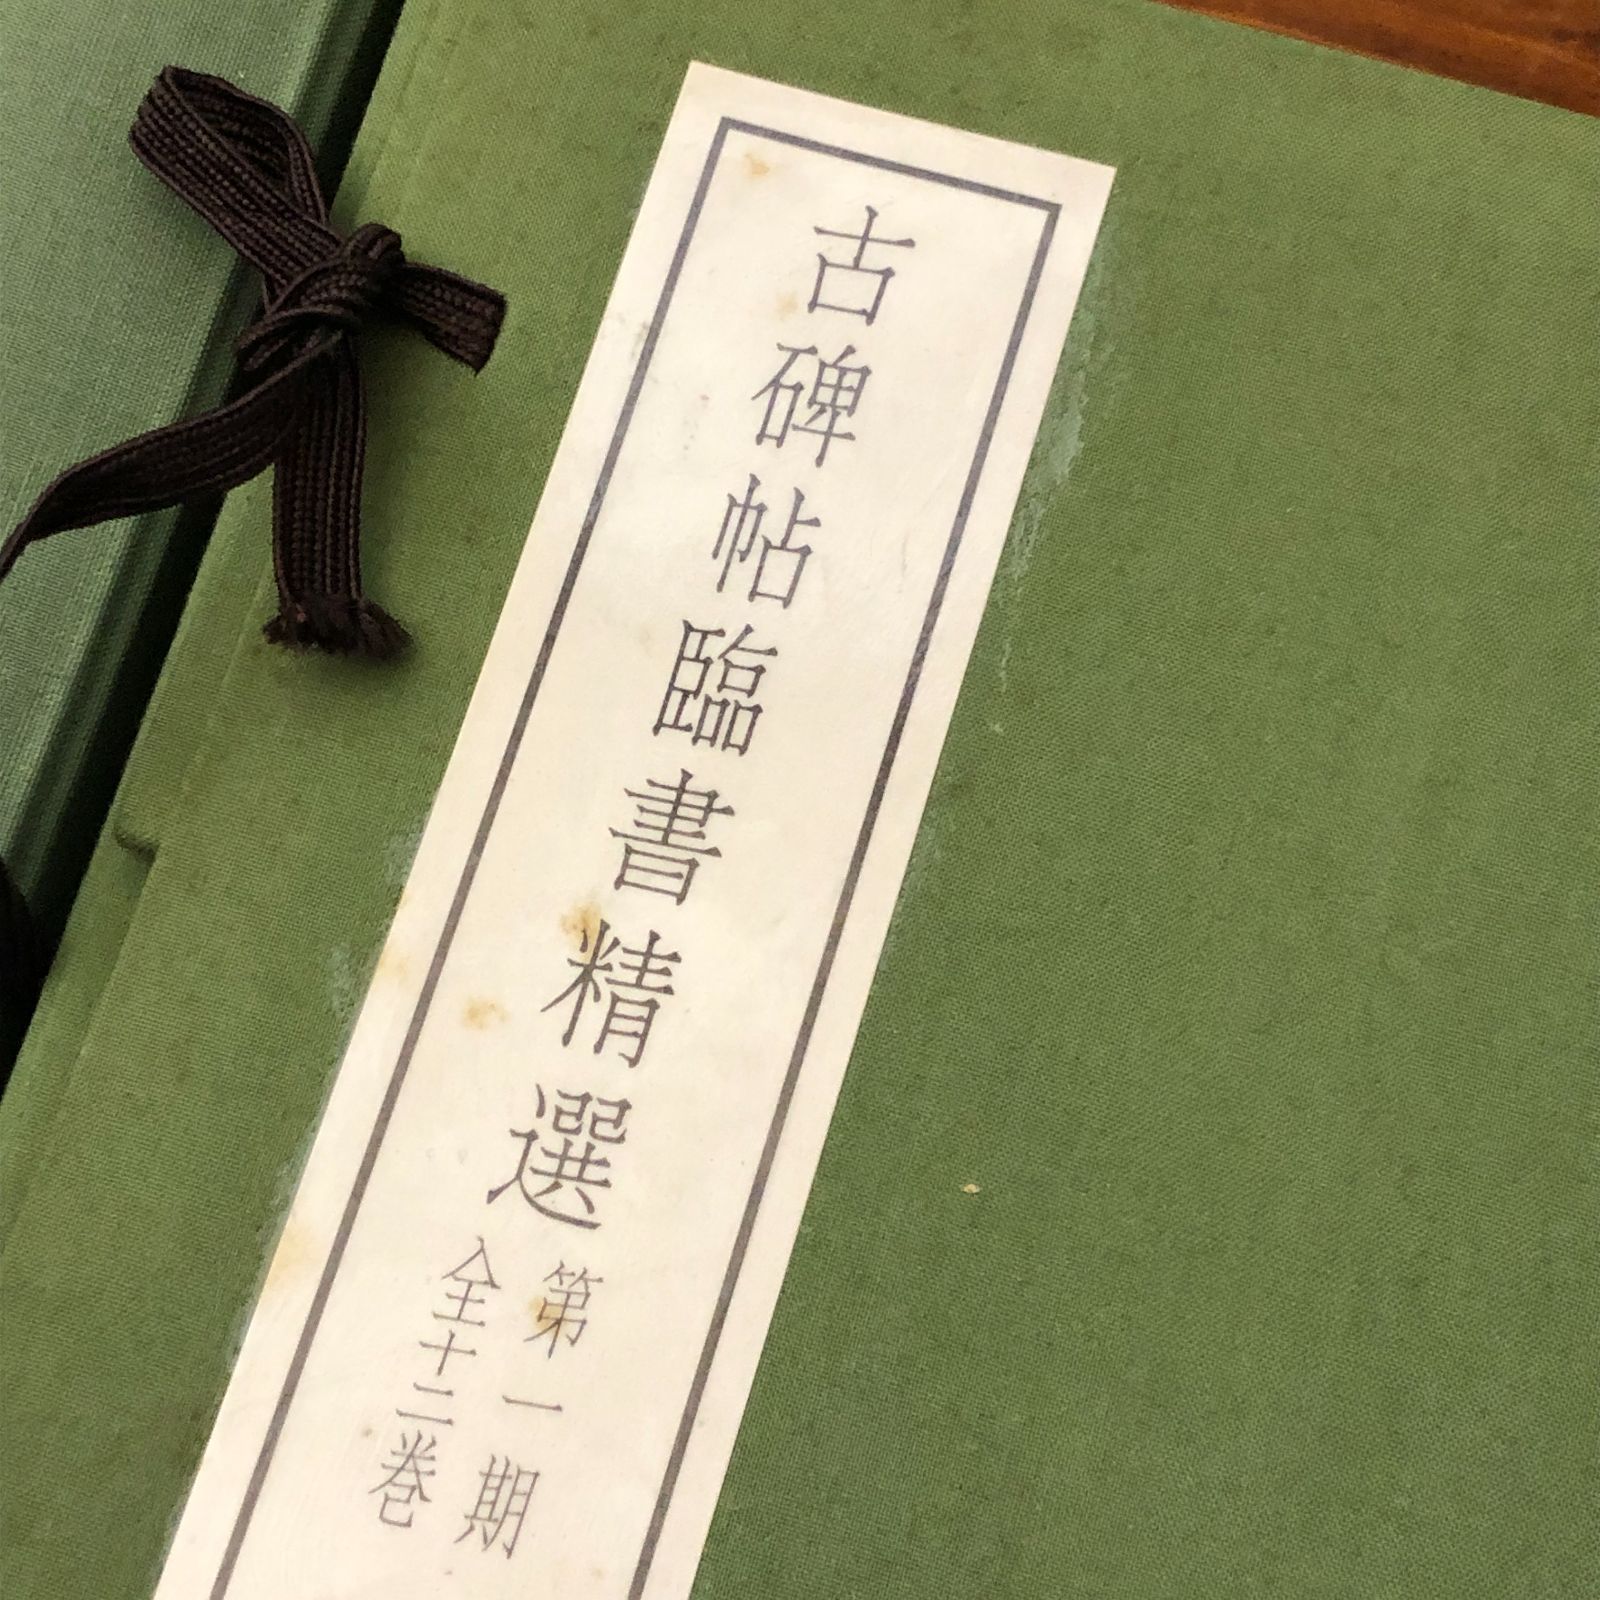 古碑帖臨書精選
第一期
全十二巻